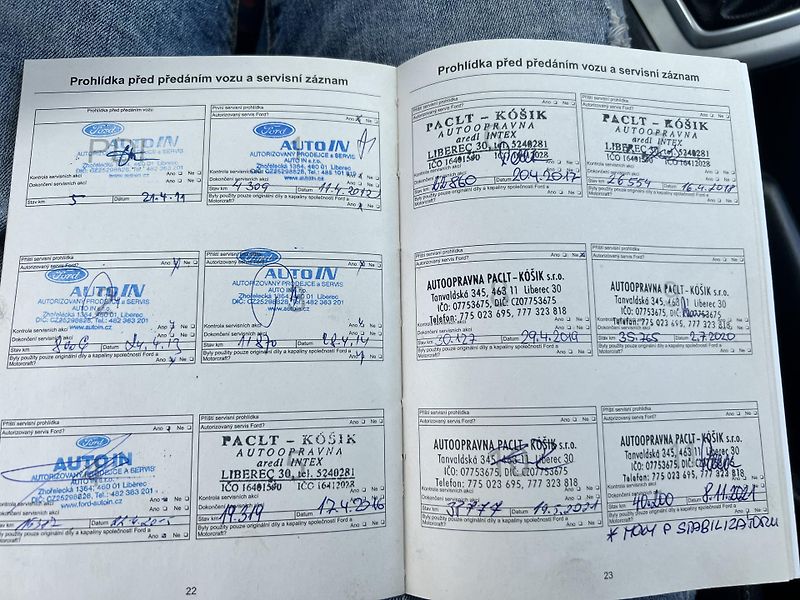 Prohlídka před předáním vozu a servisní záznam
Prohlídka před předáním vozu
Ford
AUTO IN
Kontrola servisních akcí
Dokončení servisních akcí
Ano Ne
Stav km 5 Datum 21.4.11
První servisní prohlídka
Autorizovaný servis Ford?
Ano Ne
Ford
AUTO IN
AUTORIZOVANÝ PRODEJCE a SERVIS
AUTO IN s.r.o.
Žhořelecká 1364, 460 01 Liberec
www.autoin.cz
Kontrola servisních akcí
Dokončení servisních akcí
Stav km 4309 Datum 11.4.2012
Byly použity pouze originální díly a kapaliny společnosti Ford a
Motorcraft?
Ano Ne
Příští servisní prohlídka
Autorizovaný servis Ford?
Ano Ne
Ford
AUTO IN
AUTORIZOVANÝ PRODEJCE a SERVIS
AUTO IN s.r.o.
Žhořelecká 1364, 460 01 Liberec
DIČ: CZ25298828, Tel.: 482 363 201
www.autoin.cz
Kontrola servisních akcí
Dokončení servisních akcí
Stav km Datum 24.4.13
Byly použity pouze originální díly a kapaliny společnosti Ford a
Motorcraft?
Příští servisní prohlídka
Autorizovaný servis Ford?
Ford
AUTO IN
AUTORIZOVANÝ PRODEJCE a SERVIS
AUTO IN s.r.o.
Žhořelecká 1364, 460 01 Liberec
DIČ: CZ25298828, Tel.: 482 363 201
www.autoin.cz
Kontrola servisních akcí
Dokončení servisních akcí
Stav km 11870 Datum 28.4.14
Byly použity pouze originální díly a kapaliny společnosti Ford a
Motorcraft?
Příští servisní prohlídka
Autorizovaný servis Ford?
Ford
AUTO IN
AUTORIZOVANÝ PRODEJCE a SERVIS
Žhořelecká 1364, 460 01 Liberec
DIČ: CZ25298828, Tel.: 482 363 201
www.ford-autoin.cz
Kontrola servisních akcí
Dokončení servisních akcí
Stav km Datum
Byly použity pouze originální díly a kapaliny společnosti Ford a
Motorcraft?
Příští servisní prohlídka
Autorizovaný servis Ford?
PACLT - KÓŠIK
aredl INTEX
LIBEREC 30, tel. 5240281
IČO 16401500 IČO 16412028
Kontrola servisních akcí
Dokončení servisních akcí
Stav km 19.319 Datum 17.4.2016
Byly použity pouze originální díly a kapaliny společnosti Ford a
Motorcraft?
22
Prohlídka před předáním vozu a servisní záznam
Příští servisní prohlídka
Autorizovaný servis Ford?
PACLT - KÓŠIK
AUTOOPRAVNA
aredl INTEX
LIBEREC 30, tel. 5240281
IČO 16401500
Stav km 22860 Datum 20.4.2017
Byly použity pouze originální díly a kapaliny společnosti Ford a
Motorcraft?
Příští servisní prohlídka
Autorizovaný servis Ford?
PACLT - KÓŠIK
AUTOOPRAVNA
aredl INTEX
LIBEREC 30, tel. 5240281
IČO 16412028
Stav km 26554 Datum 16.4.2018
Byly použity pouze originální díly a kapaliny společnosti Ford a
Motorcraft?
Příští servisní prohlídka
Autorizovaný servis Ford?
AUTOOPRAVNA PACLT-KÓŠIK s.r.o.
Tanvaldská 345, 463 11 Liberec 30
IČO: 07753675, DIČ: CZ07753675
Telefon: 775 023 695, 777 323 818
Stav km 30.127 Datum 29.4.2019
Byly použity pouze originální díly a kapaliny společnosti Ford a
Motorcraft?
Příští servisní prohlídka
Autorizovaný servis Ford?
AUTOOPRAVNA PACLT-KÓŠIK s.r.o.
Tanvaldská 345, 463 11 Liberec 30
IČO: 07753675, DIČ: CZ07753675
Telefon: 775 023 695, 777 323 818
Stav km 35.765 Datum 2.7.2020
Byly použity pouze originální díly a kapaliny společnosti Ford a
Motorcraft?
Příští servisní prohlídka
Autorizovaný servis Ford?
AUTOOPRAVNA PACLT-KÓŠIK s.r.o.
Tanvaldská 345, 463 11 Liberec 30
IČO: 07753675, DIČ: CZ07753675
Telefon: 775 023 695, 777 323 818
Kontrola servisních akcí
Dokončení servisních akcí
Stav km Datum 19.5.2021
Byly použity pouze originální díly a kapaliny společnosti Ford a
Motorcraft?
Příští servisní prohlídka
Autorizovaný servis Ford?
AUTOOPRAVNA PACLT-KÓŠIK s.r.o.
Tanvaldská 345, 463 11 Liberec 30
IČO: 07753675, DIČ: CZ07753675
Telefon: 775 023 695, 777 323 818
Stav km 40.200 Datum 8.11.2021
Byly použity pouze originální díly a kapaliny společnosti Ford a
Motorcraft?
* NOVÝ P STABILIZÁTORU
23